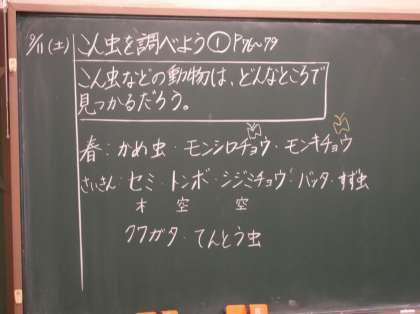 9/11(土) こん虫を調べよう① P76~79
こん虫などの動物は、どんなところで
見つかるだろう。
春:かめ虫・モンシロチョウ・モンキチョウ
さいきん:セミ・トンボ・シジミチョウ・バッタ・すず虫
木 空 空
クワガタ・てんとう虫